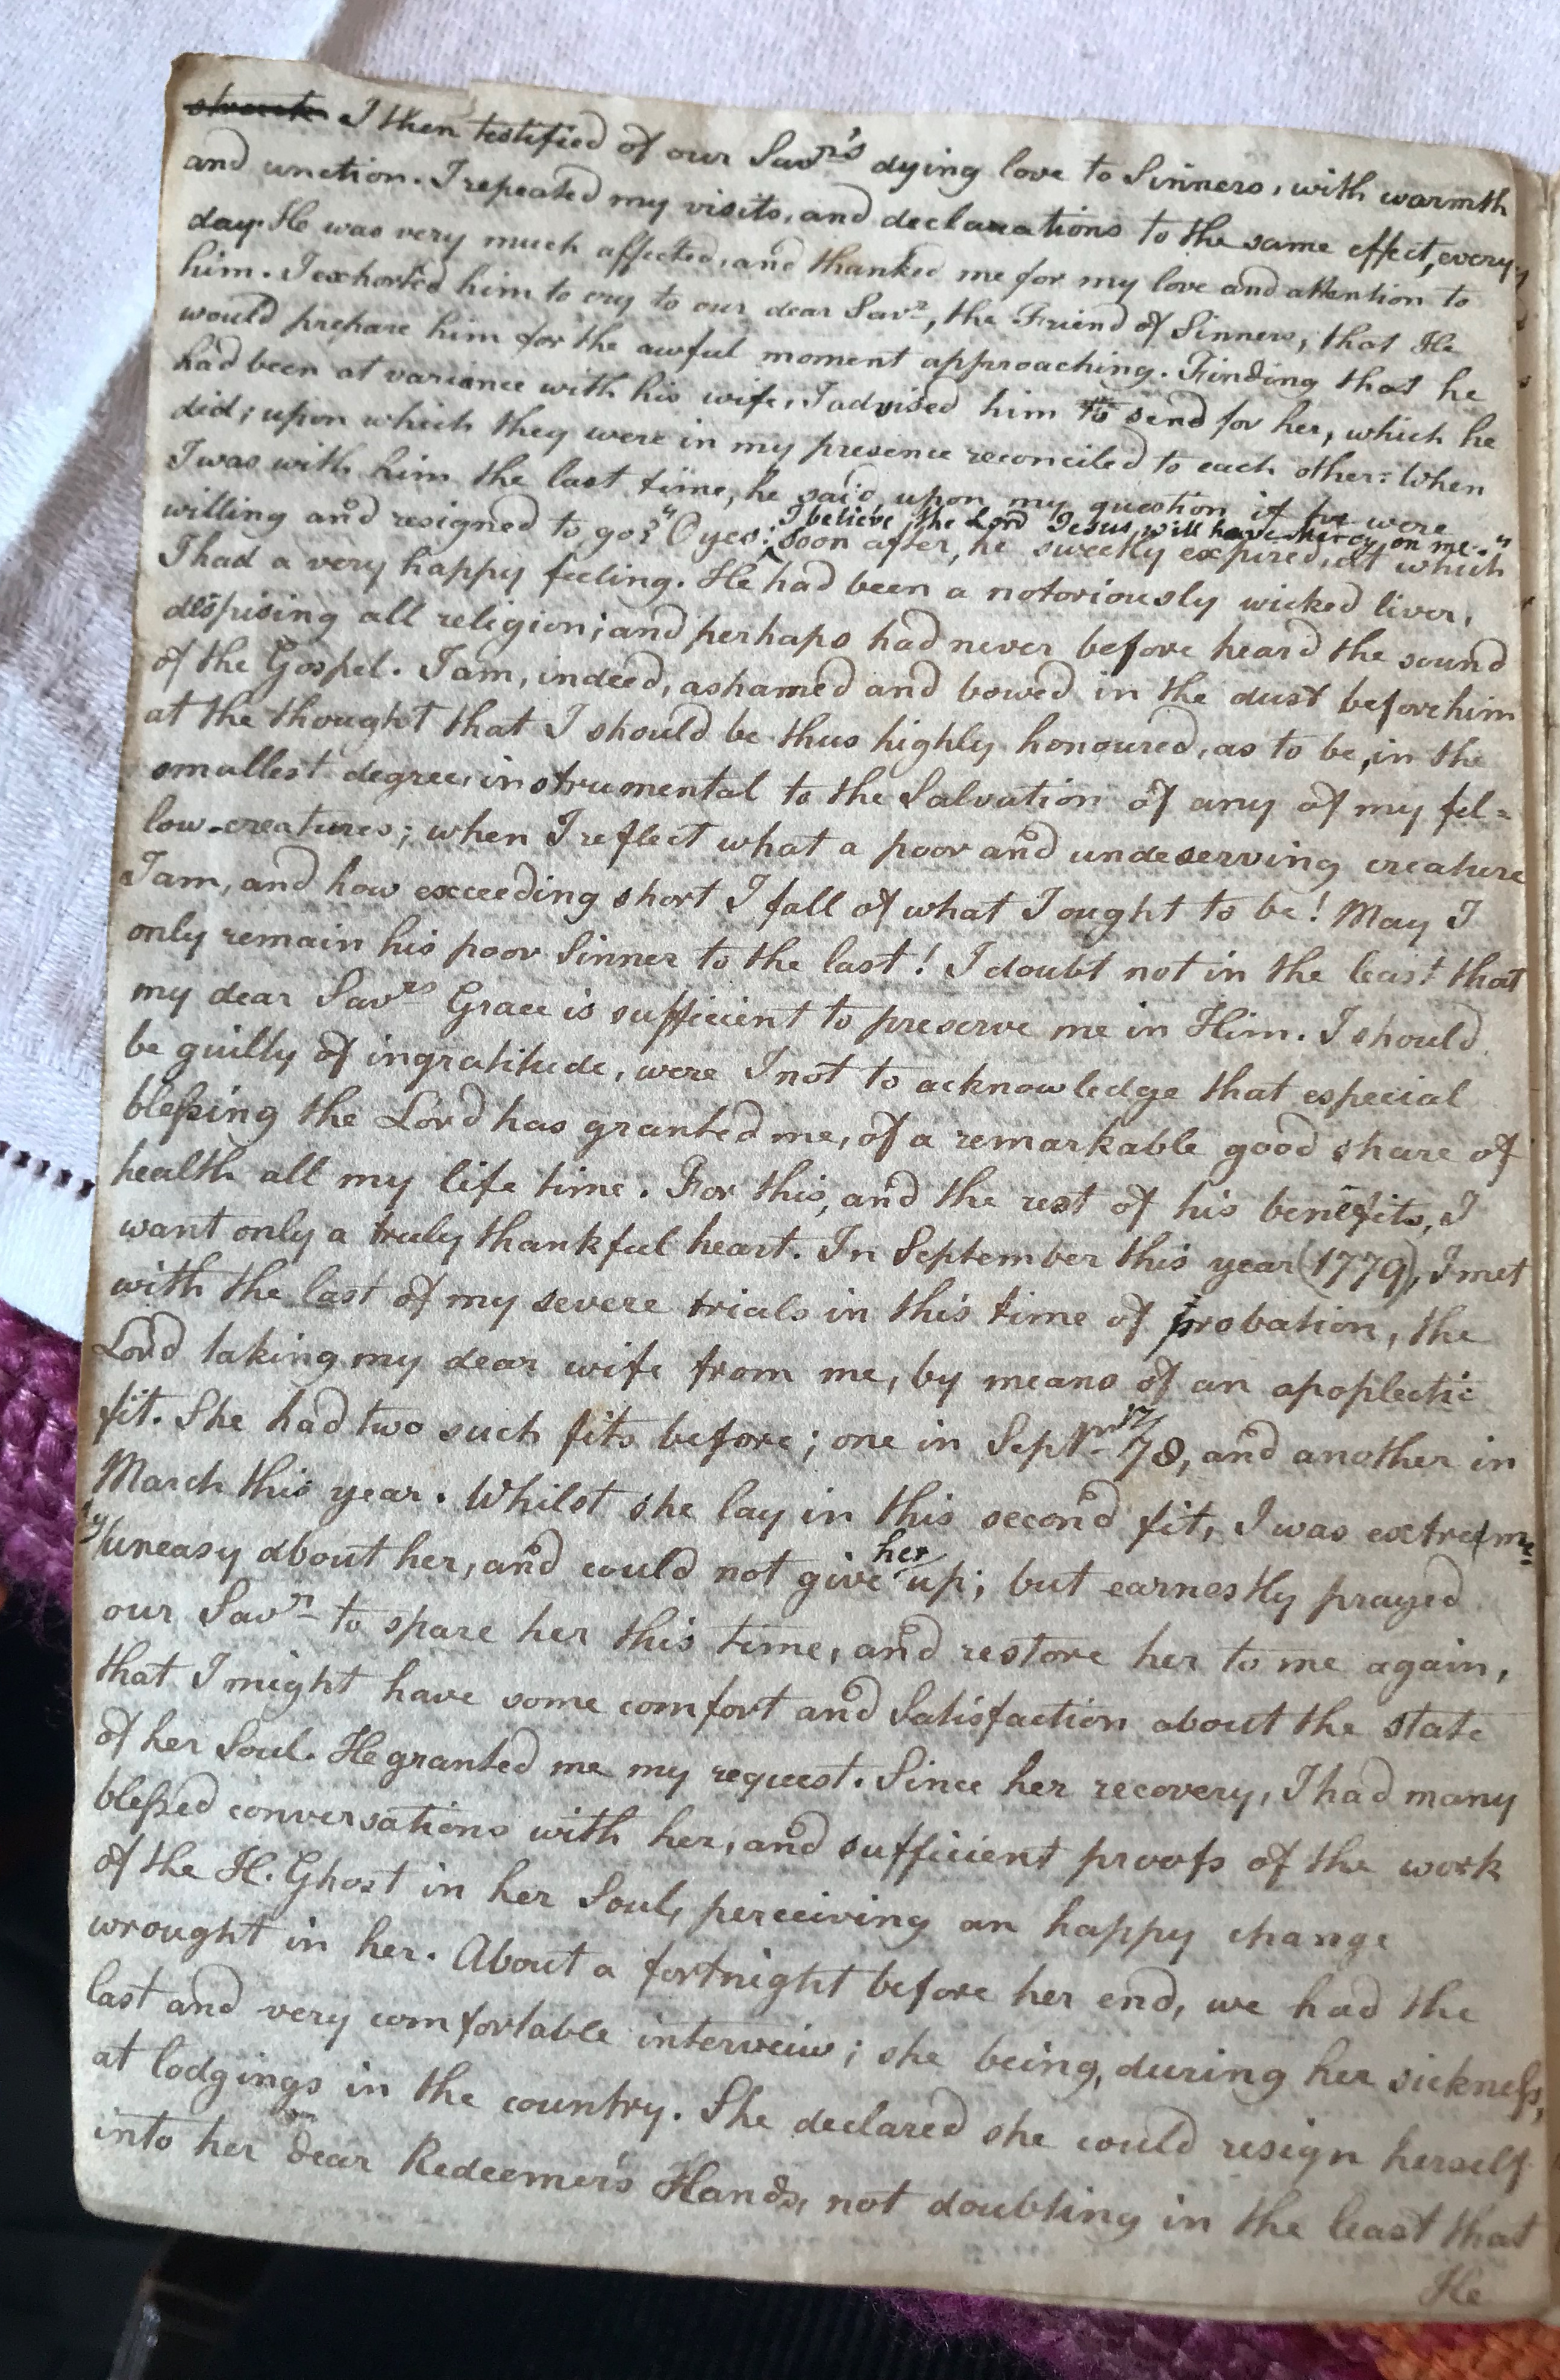 struck I then testified of our Savrs dying love to Sinners, with warmth
and unction. I repeated my visits, and declarations to the same effect, every
day. He was very much affected, and thanked me for my love and attention to
him. I exhorted him to cry to our dear Savr, the Friend of Sinners, that He
would prepare him for the awful moment approaching. Finding that he
had been at variance with his wife, I advised him to send for her, which he
did; upon which they were in my presence reconciled to each other. When
I was with him the last time, he said, upon my question if he were
I believe the Lord Jesus will have mercy on me."
willing and resigned to go? "O yes; soon after, he sweetly expired, at which
I had a very happy feeling. He had been a notoriously wicked liver,
despising all religion; and perhaps had never before heard the sound
of the Gospel. I am, indeed, ashamed and bowed in the dust before him
at the thought that I should be thus highly honoured, as to be, in the
smallest degree, instrumental to the Salvation of any of my fel=
low-creatures; when I reflect what a poor and undeserving creature
I am, and how exceeding short I fall of what I ought to be! May I
only remain his poor Sinner to the last! I doubt not in the least that
my dear Savrs Grace is sufficient to preserve me in Him. I should
be guilty of ingratitude, were I not to acknowledge that especial
blessing the Lord has granted me, of a remarkable good share of
health all my life time. For this, and the rest of his benefits, I
want only a truly thankful heart. In September this year (1779), I met
with the last of my severe trials in this time of probation, the
Lord taking my dear wife from me, by means of an apoplectic
fit. She had two such fits before; one in Septr 1778, and another in
March this year. Whilst she lay in this second fit, I was extreme=
ly uneasy about her, and could not give her up; but earnestly prayed
our Savr to spare her this time, and restore her to me again,
that I might have some comfort and Satisfaction about the state
of her Soul. He granted me my request. Since her recovery, I had many
blessed conversations with her, and sufficient proofs of the work
of the H. Ghost in her Soul, perceiving an happy change
wrought in her. About a fortnight before her end, we had the
last and very comfortable interveiw; she being, during her sickness,
at lodgings in the country. She declared she could resign herself
into her dear Redeemer's Hands, not doubting in the least that
He